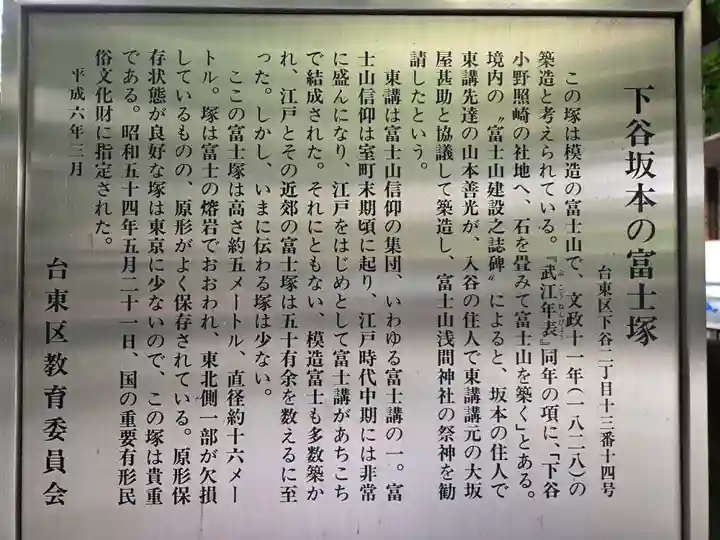 下谷坂本の富士塚
台東区下谷二丁目十三番十四号
この塚は模造の富士山で、文政十一年(一八二八)の
築造と考えられている。『武江年表』同年の項に、「下谷
小野照崎の社地へ、石を畳みて富士山を築く」とある。
境内の〝富士山建設之誌碑〟によると、坂本の住人で
東講先達の山本善光が、入谷の住人で東講講元の大坂
屋甚助と協議して築造し、富士山浅間神社の祭神を勧
請したという。
東講は富士山信仰の集団、いわゆる富士講の一。富
士山信仰は室町末期頃に起り、江戸時代中期には非常
に盛んになり、江戸をはじめとして富士講があちこち
で結成された。それにともない、模造富士も多数築か
れ、江戸とその近郊の富士塚は五十有余を数えるに至
った。しかし、いまに伝わる塚は少ない。
ここの富士塚は高さ約五メートル、直径約十六メー
トル。塚は富士の熔岩でおおわれ、東北側一部が欠損
しているものの、原形がよく保存されている。原形保
存状態が良好な塚は東京に少ないので、この塚は貴重
である。昭和五十四年五月二十一日、国の重要有形民
俗文化財に指定された。
平成六年三月
台東区教育委員会